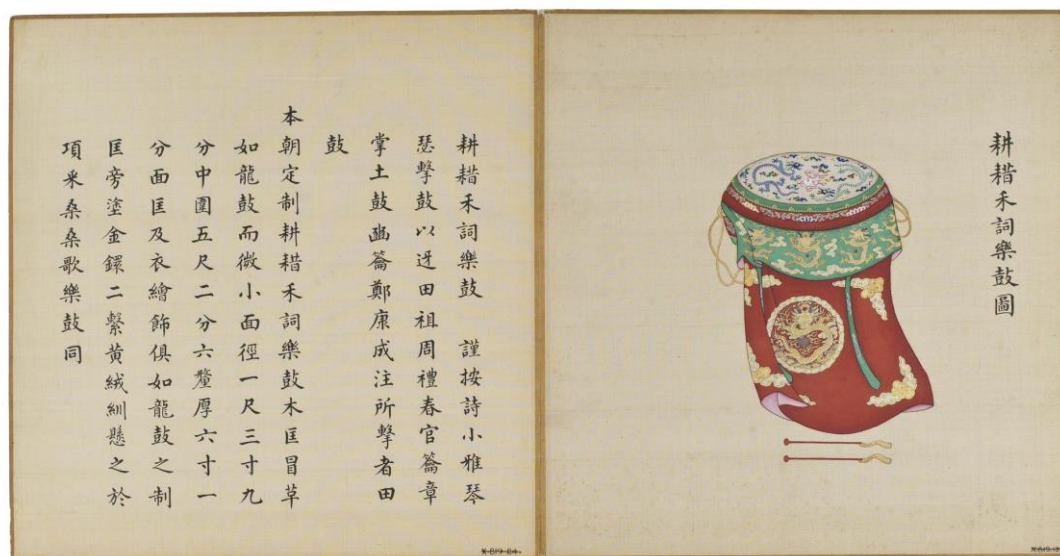 耕耤禾詞樂鼓圖
耕耤禾詞樂鼓　謹按詩小雅琴
瑟擊鼓以迓田祖周禮春官籥章
掌土鼓豳籥鄭康成注所擊者田
鼓
本朝定制耕耤禾詞樂鼓木匡冒革
如龍鼓而微小面徑一尺三寸九
分中圍五尺二分六釐厚六寸一
分面匡及衣繪飾俱如龍鼓之制
匡旁塗金鐶二繫黃絨紃懸之於
項采桑桑歌樂鼓同